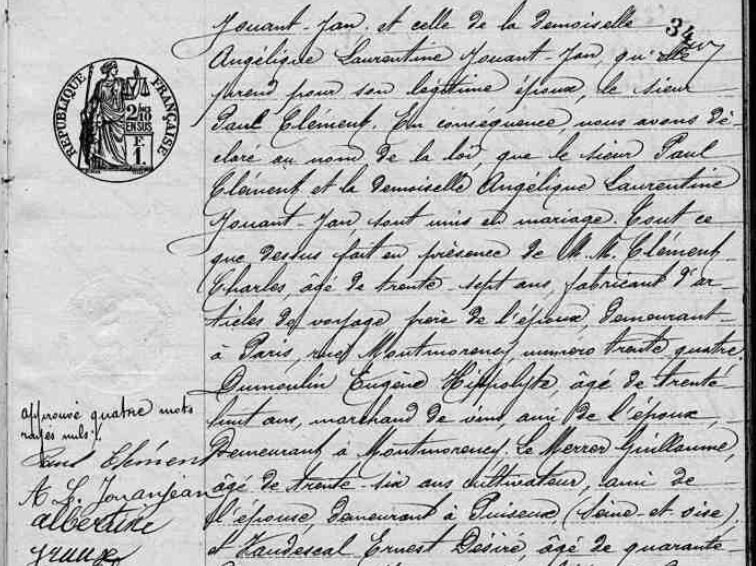 Jouant-Jan, et celle de la demoiselle
34
Angélique Laurentine Jouant-Jan, qu'elle
prend pour son légitime époux, le sieur
Paul Clément. En conséquence, nous avons dé-
claré au nom de la loi, que le sieur Paul
Clément et la demoiselle Angélique Laurentine
Jouant-Jan, sont unis en mariage. Tout ce
que dessus fait en présence de M.M. Clément
Charles, âgé de trente-sept ans, fabricant d'ar-
ticles de voyage frère de l'époux, demeurant
à Paris, rue Montmorency numéro trente quatre,
Dumoulin Eugène Hippolyte, âgé de trente-
huit ans, marchand de vins, ami de l'époux,
demeurant à Montmorency. Le Merrer Guillaume,
âgé de trente-six ans cultivateur, ami de
l'épouse, demeurant à Puiseux, (Seine et oise)
et Vandescal Ernest Désiré, âgé de quarante-
RÉPUBLIQUE FRANÇAISE
2/10 EN SUS
F. 1.
approuvé quatre mots
rayés nuls
Paul Clément
A. L. Jouanjean
albertine